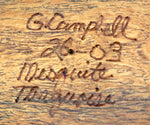 G. Campbell
26 - 03
Mesquite
Turquoise